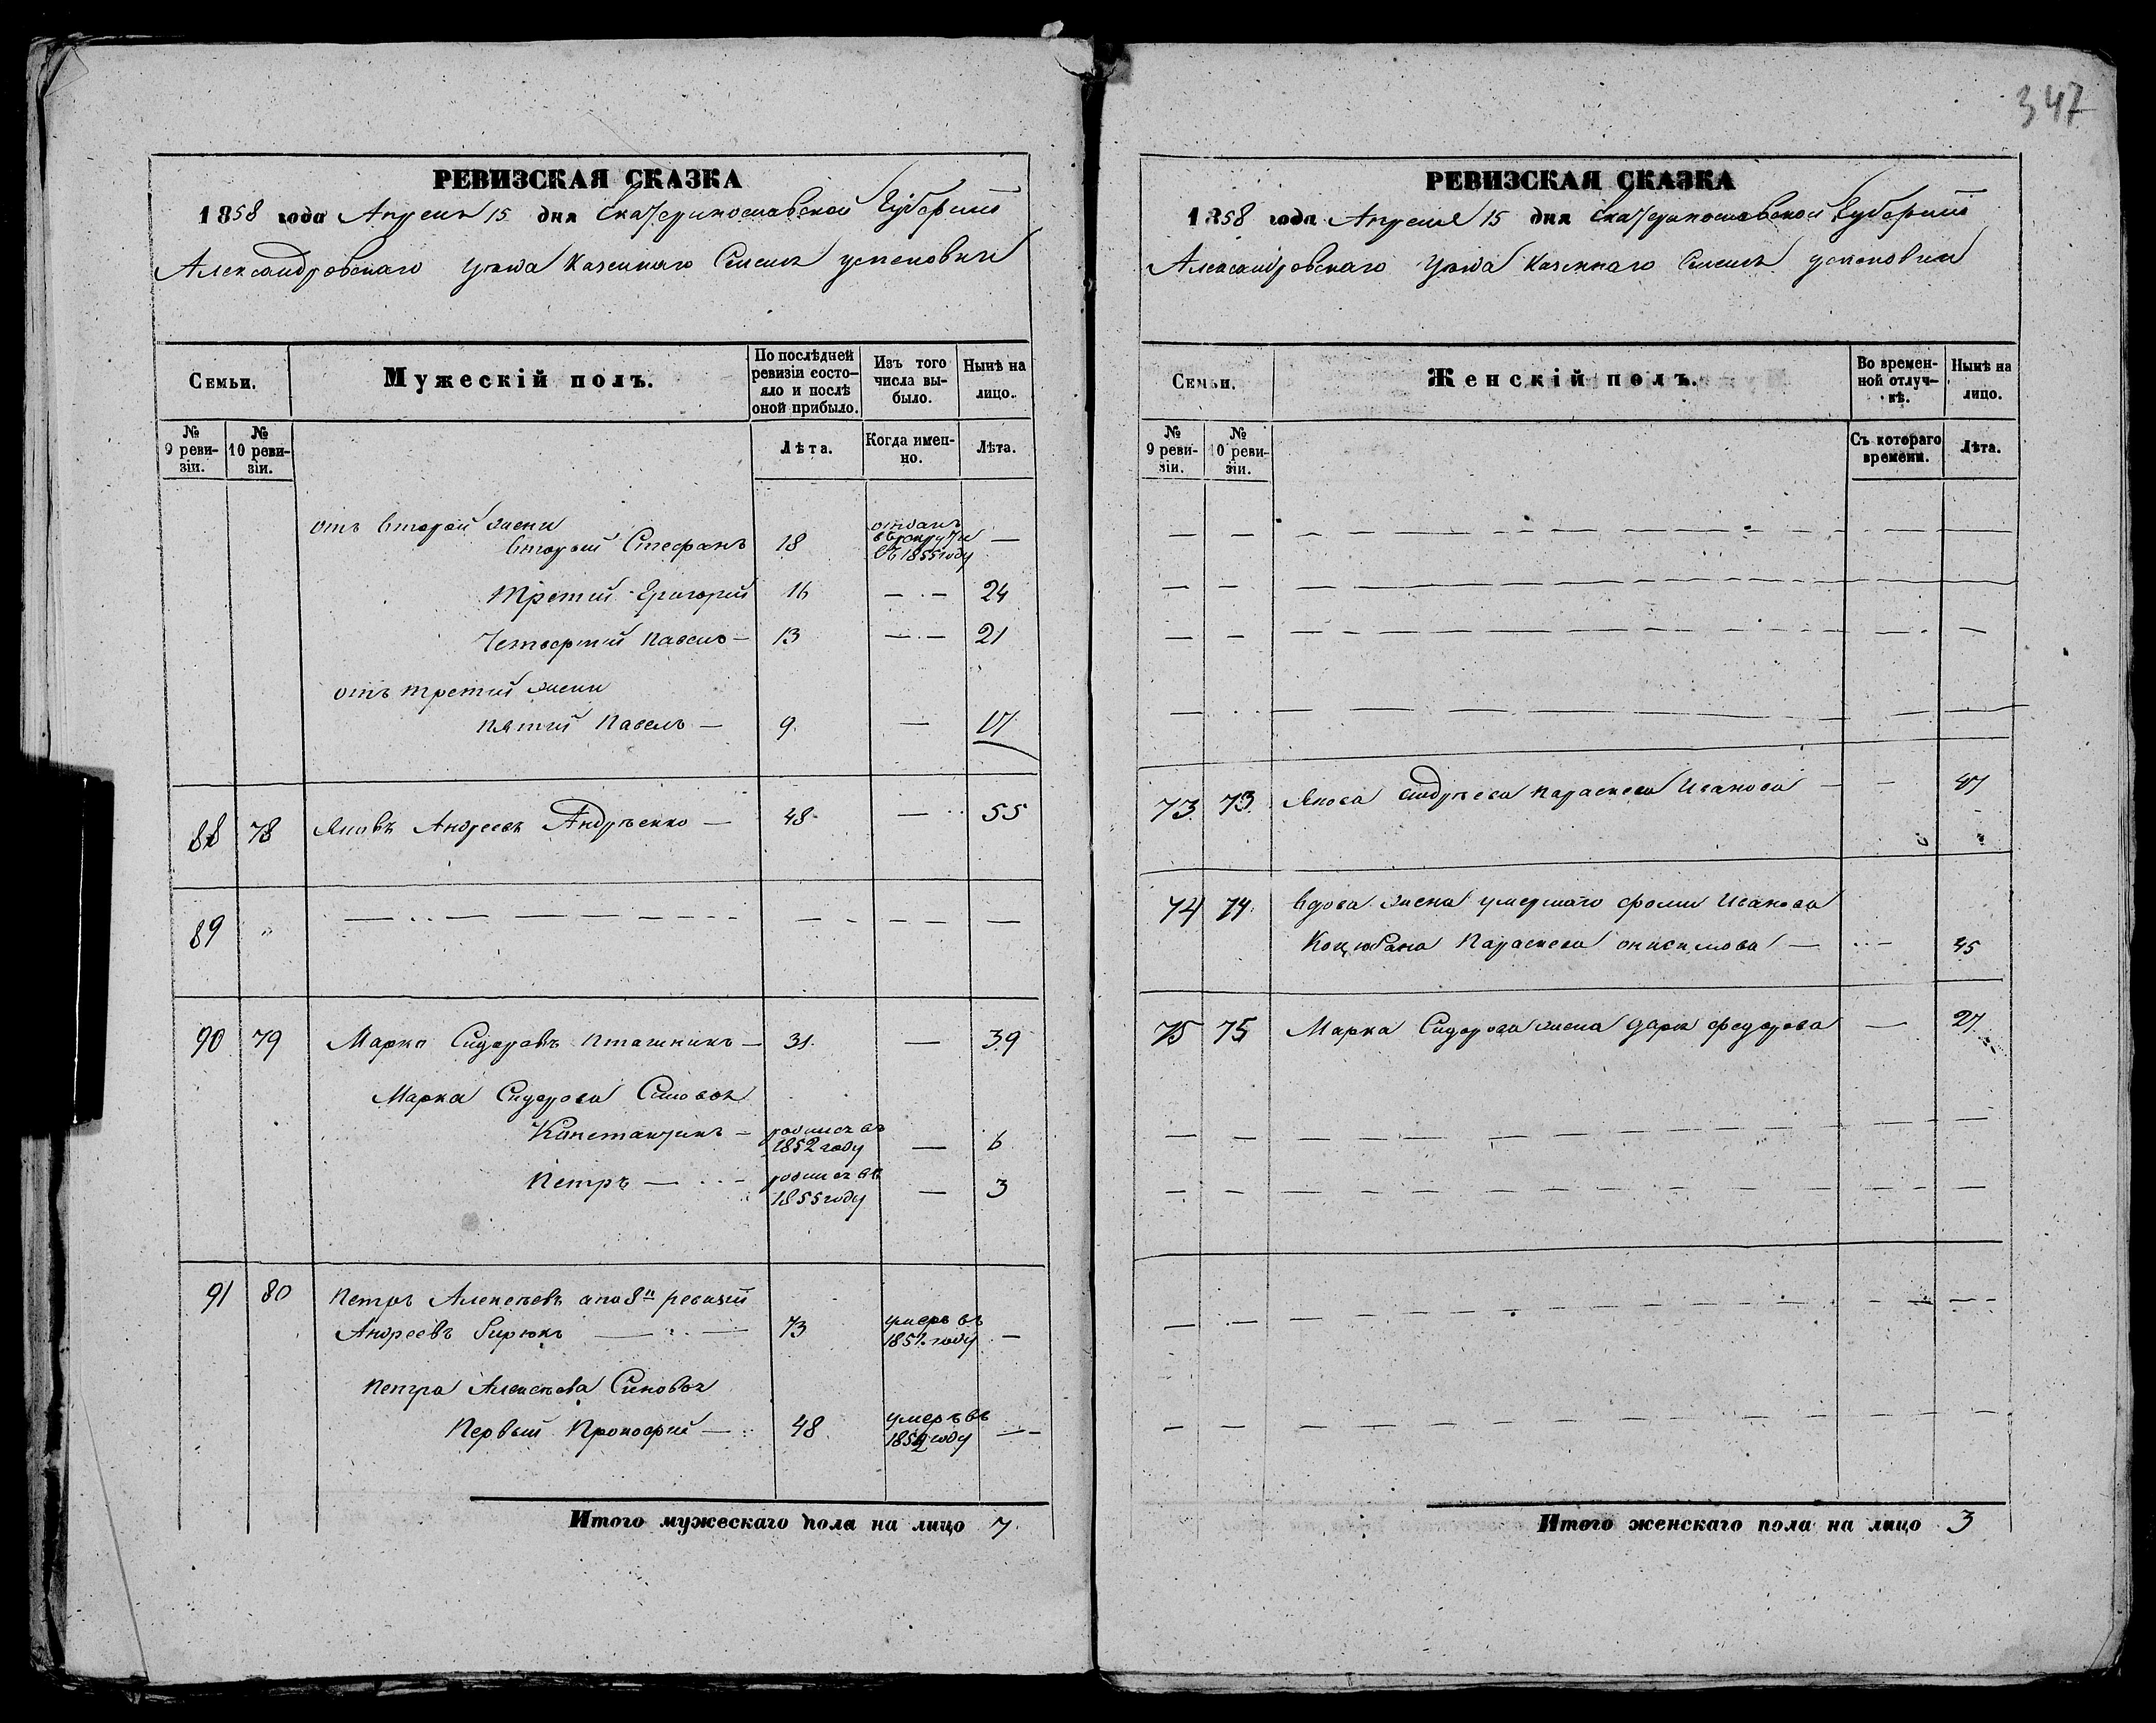 РЕВИЗСКАЯ СКАЗКА
1858 года Апреля 15 дня Екатеринославской Губернии
Александровскаго уезда Казеннаго Селенія успеновки
Семьи.
Мужескій полъ.
По послѣдней ревизіи состо-
яло и послѣ оной прибыло.
Изъ того числа вы-
было.
Нынѣ на лицо.
№ 9 реви-
зіи.
№ 10 реви-
зіи.
Лѣта.
Когда имен-
но.
Лѣта.
отъ второй жени
вторый Стефанъ 18 отданъ в врекруты въ 1855 году —
Третий Григорий 16 — . — 24
Четвертий Павелъ — 13 — . — 21
отъ третий жени
пятий Павелъ — 9. — 17
88 78 Яковъ Андреевъ Андрѣенко — 48 — 55
89 "
90 79 Марко Сидоровъ Пташникъ — 31. — 39
Марка Сидорова Сыновья
Константинъ — родился въ 1852 году — 6
Петръ — родился въ 1855 году — 3
91 80 Петръ Алексѣевъ а по 8й ревизий
Андреевъ Бирюкъ — 73 умеръ въ 1851 году —
Петра Алексѣева Синовья
Первый Прокофий — 48 умеръ въ 1852 году —
Итого мужескаго пола на лицо 7
347
РЕВИЗСКАЯ СКАЗКА
1858 года Апреля 15 дня Екатеринославской Губернии
Александровскаго уезда Казеннаго Селенія успеновки
Семьи.
Женскій полъ.
Во времен-
ной отлуч-
кѣ.
Нынѣ на лицо.
№ 9 реви-
зіи.
№ 10 реви-
зіи.
Съ котораго времени.
Лѣта.
73. 73. Якова Андрѣева Параскева Иванова — 47
74 74. вдова жена умершаго фоми Иванова
Коцюбана Параскева онисимова — 45
75 75 Марка Сидорова жена Даря федорова — 27
Итого женскаго пола на лицо 3